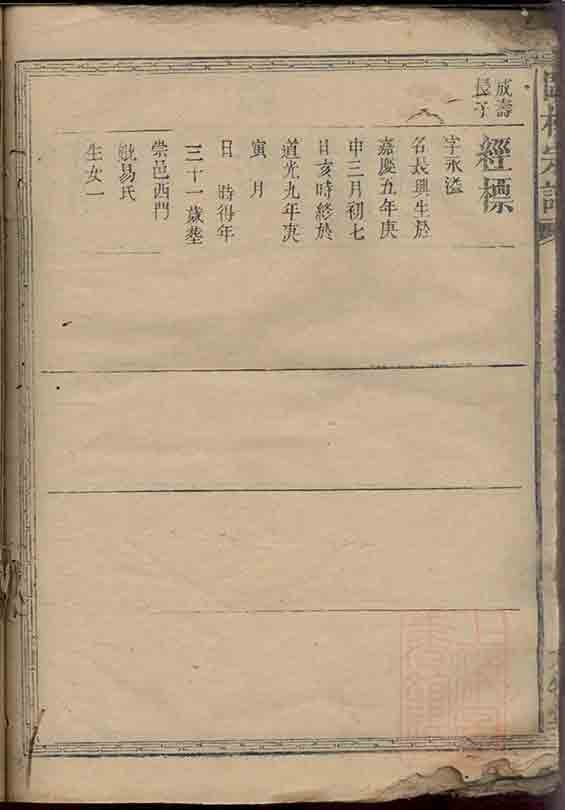 成壽
長子
經標
字永溢
名長興生於
嘉慶五年庚
申三月初七
日亥時終於
道光九年庚
寅 月
日 時得年
三十一歲塟
崇邑西門
妣易氏
生女一